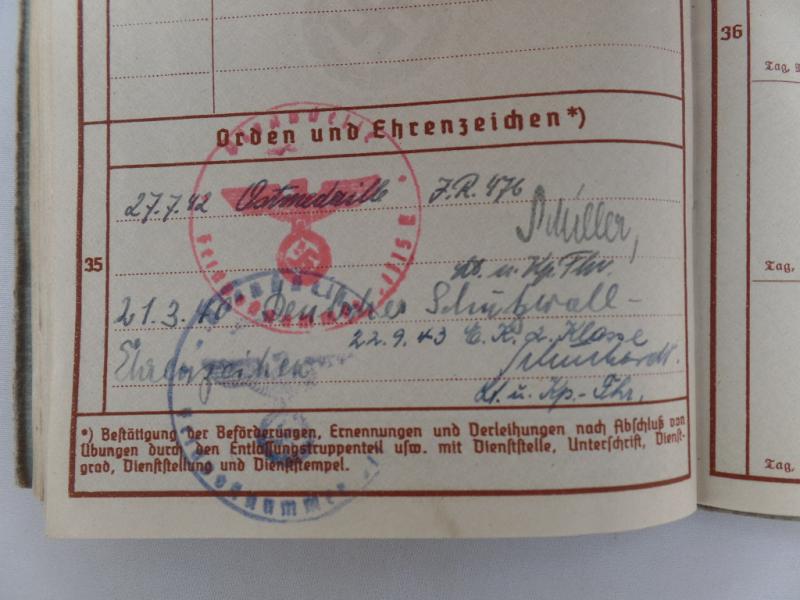 Orden und Ehrenzeichen*)
36
Tag,
27.7.42 Ostmedaille J.R. 476
Schiller,
Lt. u. Kp. Fhr.
35
Tag,
21.3.40 Deutsches Schutzwall-
22.9.43 E.K. 2. Klasse
Ehrenzeichen
Lt. u. Kp.-Fhr.
*) Bestätigung der Beförderungen, Ernennungen und Verleihungen nach Abschluß von
Übungen durch den Entlassungstruppenteil usw. mit Dienststelle, Unterschrift, Dienst-
grad, Dienststellung und Dienststempel.
Tag,
Feldpostnummer